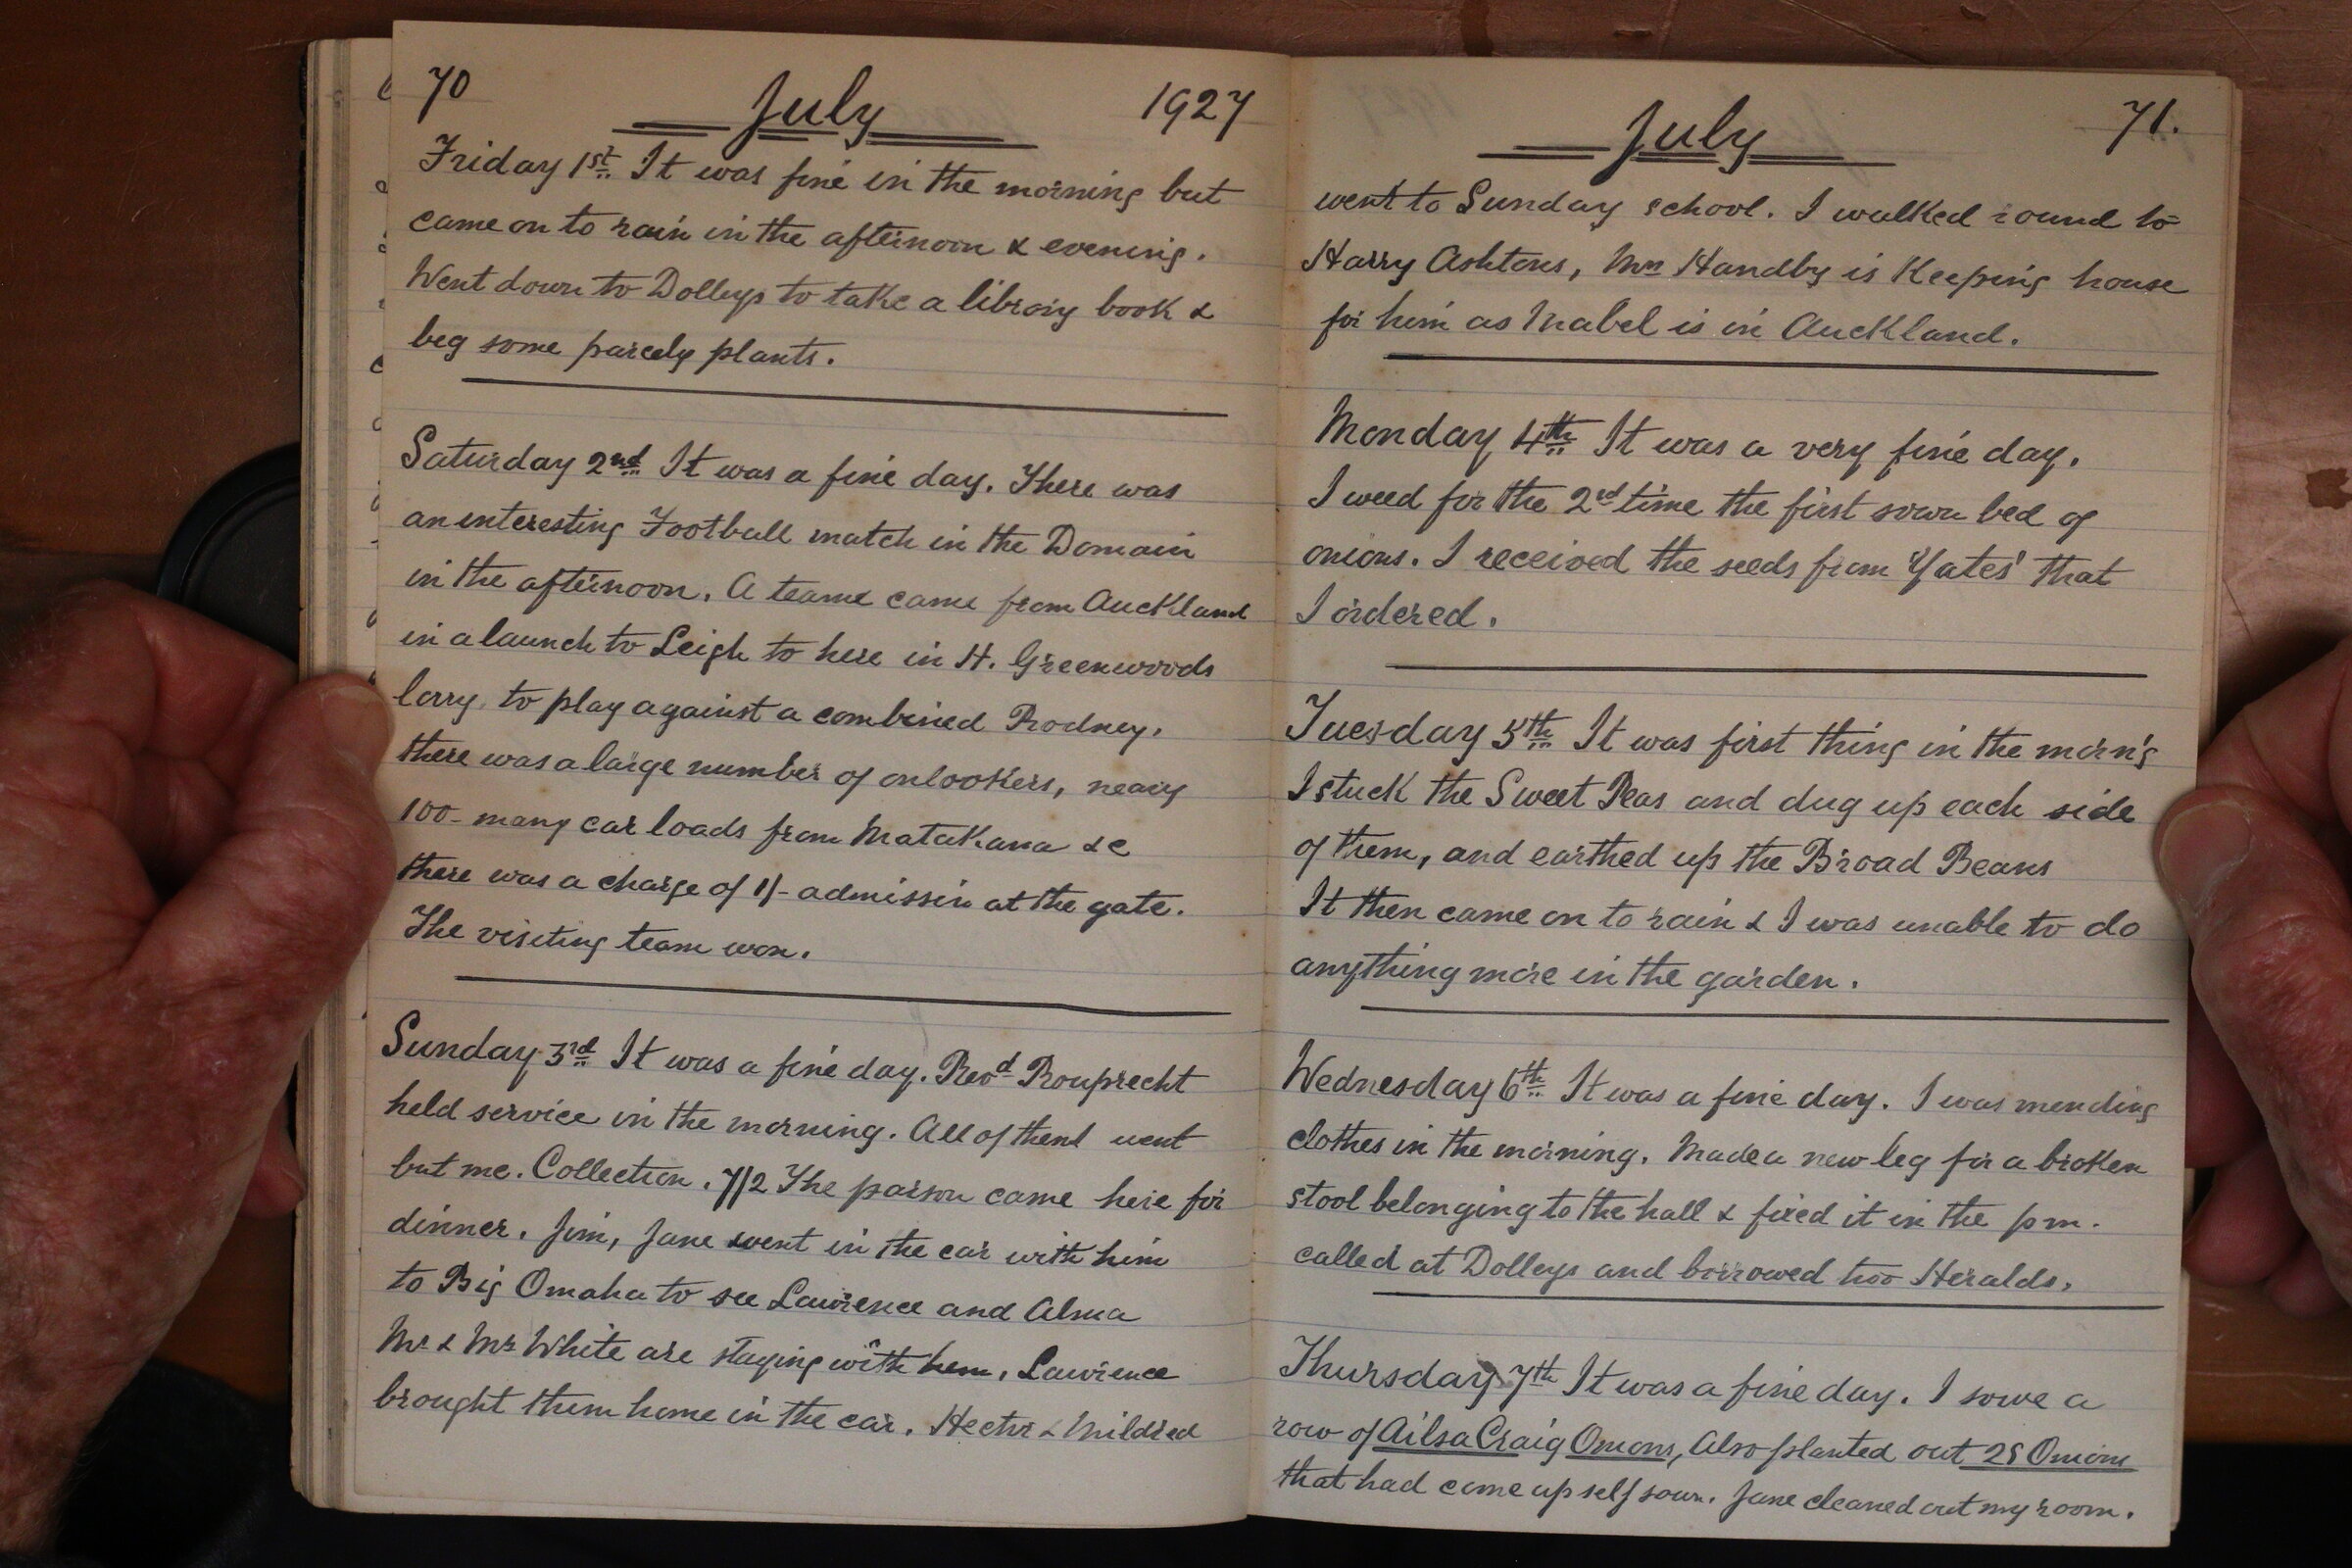 70 July 1927
Friday 1st It was fine in the morning but
came on to rain in the afternoon & evening.
Went down to Dolleys to take a library book &
beg some parcely plants.
Saturday 2nd It was a fine day. There was
an interesting Football match in the Domain
in the afternoon. A teame came from Auckland
in a launch to Leigh to here in H. Greenwoods
lorry to play against a combined Rodney.
there was a large number of onlookers, neary
100 - many car loads from Matakana &c
there was a charge of 1/- admissin at the gate.
The visiting team won.
Sunday 3rd It was a fine day. Revd Rouprecht
held service in the morning. All of them went
but me. Collection. 7/2 The parson came here for
dinner. Jim, Jane went in the car with him
to Big Omaha to see Lawrence and Alma
Mr & Mrs White are staying with hem. Lawrence
brought them home in the car. Hector & Mildred
July 71.
went to Sunday school. I walked round to
Harry Ashtons, Mrs Handby is Keeping house
for him as Mabel is in Auckland.
Monday 4th It was a very fine day.
I weed for the 2nd time the first sown bed of
onions. I received the seeds from 'Yates' that
I ordered.
Tuesday 5th It was first thing in the morn'g
I stuck the Sweet Peas and dug up each side
of them, and earthed up the Broad Beans
It then came on to rain & I was unable to do
anything more in the garden.
Wednesday 6th It was a fine day. I was mending
clothes in the morning. Made a new leg for a broken
stool belonging to the hall & fixed it in the pm.
called at Dolleys and borrowed two Heralds.
Thursday 7th It was a fine day. I sowe a
row of Ailsa Craig Onions, Also planted out 28 Onions
that had come up self sown. Jane cleaned out my room.